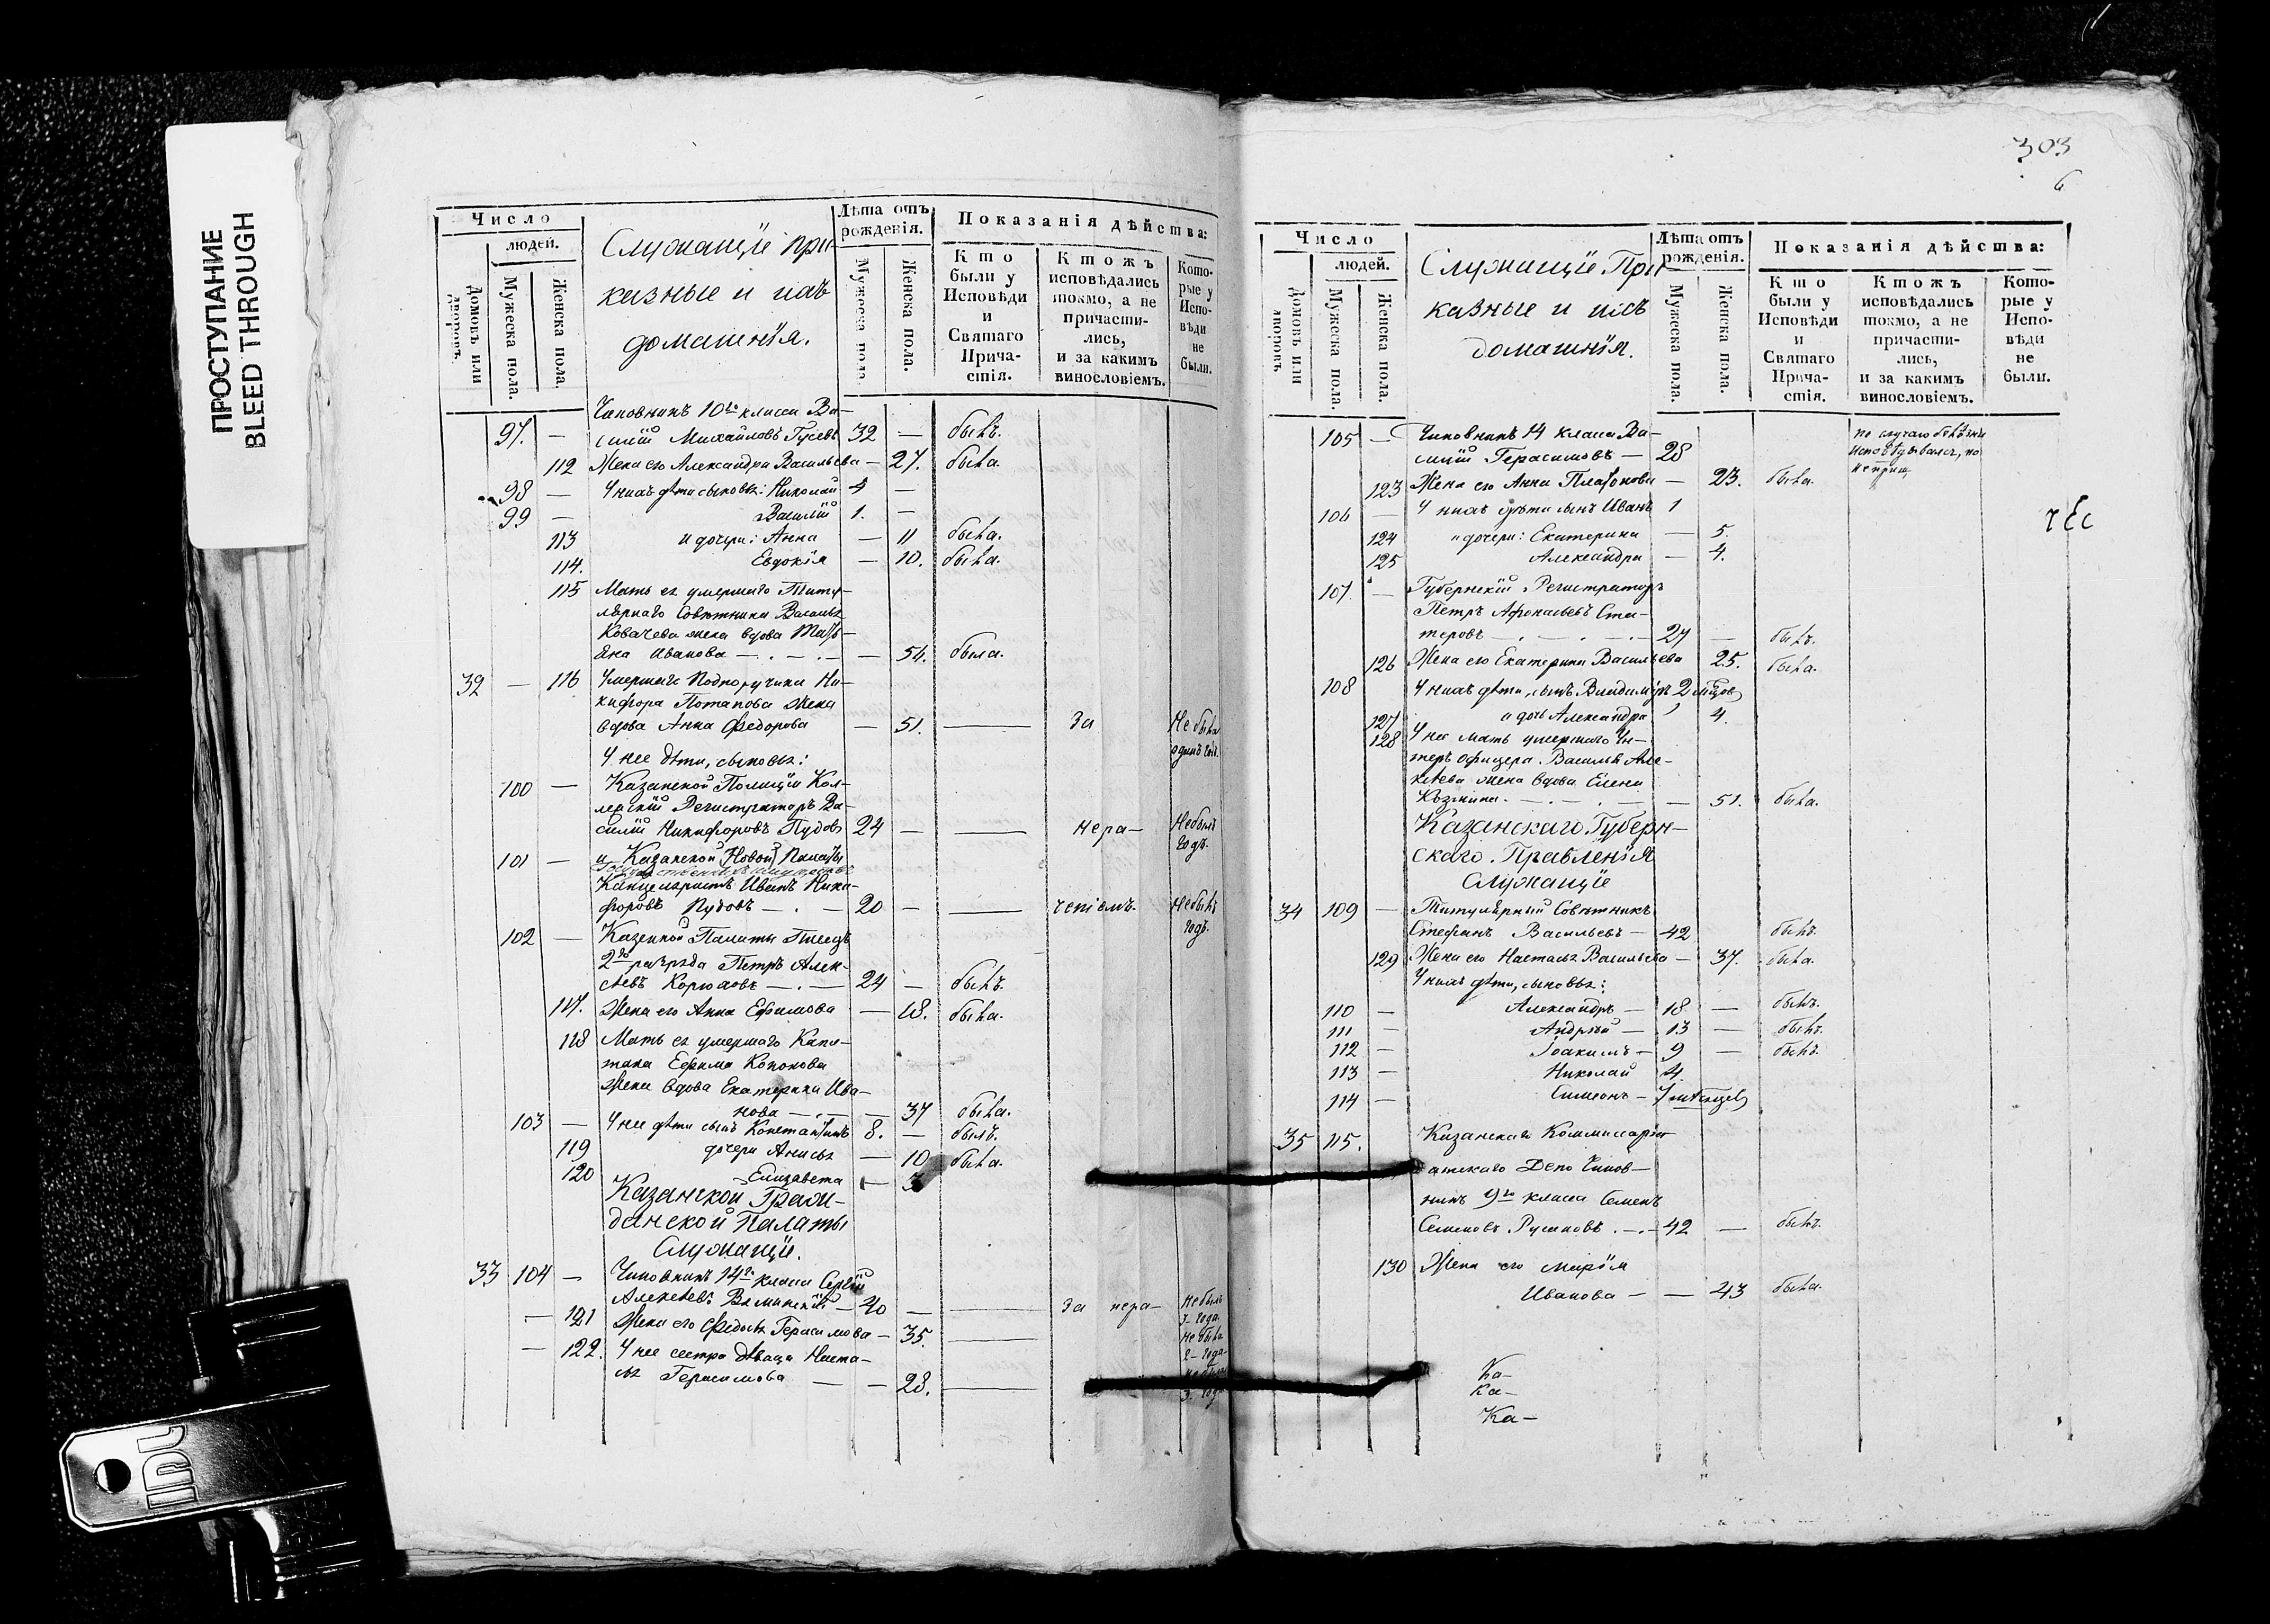 ПРОСТУПАНИЕ
BLEED THROUGH
Число
людей.
Домовъ или дворовъ.
Мужеска пола.
Женска пола.
Служащіе при-
казные и ихъ
домашнія.
Лѣта отъ рожденія.
Мужеска пола
Женска пола.
Показанія дѣйства:
Кто были у Исповѣди и Святаго Прича- стія.
Ктожъ исповѣдались токмо, а не причасти- лись, и за какимъ винословіемъ.
Кото- рые у Испо- вѣди не были.
Чиновникъ 10го класса Ва-
97. — силій Михайловъ Гусевъ 32 — былъ.
112 Жена его Александра Васильева — 27. была.
98 — У нихъ дѣти сыновья: Николай 4 —
99 — Василій 1. —
113 и дочери: Анна — 11 была.
114. Евдокія — 10. была.
115 Мать ея умершаго Титу-
лярнаго Совѣтника Василья
Ковачева жена вдова Тать-
яна Иванова — . — . — — 54. была.
32 — 116 Умершаго Подпоручика Ни-
кифора Потапова жена
вдова Анна Федорова — 51. — За Не была
одинъ годъ.
У нее дѣти, сыновья:
100 — Казанской Полиціи Кол-
лежскій Регистраторъ Ва-
силій Никифоровъ Пудовъ 24 — — нера- Не былъ
годъ.
101 — и Казанской Новой Палаты
Канцеляристъ Иванъ Ники-
форовъ Пудовъ — . — 20 — — ченіемъ. Не былъ
годъ.
102 — Казенной Палаты Писецъ
2го разряда Петръ Алек-
сѣевъ Корюховъ — . — 24 — былъ.
117. Жена его Анна Ефимова — 18. была.
118 Мать ея умершаго Капи-
тана Ефима Кононова
жена вдова Екатерина Ива-
нова — . — — 37 была.
103 — У нее дѣти сынъ Константинъ 8. — былъ.
119 дочери Анисья — 10 была.
120 Елизавета — 3
Казанской Граж-
данской Палаты
Служащіе.
33 104 — Чиновникъ 14го класса Сергѣй
Алексѣевъ — 40 — — За нера- Не былъ
3- года.
— 121 Жена его Федосья Герасимова — 35. — Не была
2- года
— 122. У нее сестра дѣвица Наста-
сья Герасимова — — 28. — Не была
3- года
303
6
Число
людей.
Домовъ или дворовъ
Мужеска пола.
Женска пола.
Служащіе При-
казные и ихъ
домашнія.
Лѣта отъ рожденія.
Мужеска пола.
Женска пола.
Показанія дѣйства:
Кто были у Исповѣди и Святаго Прича- стія.
Ктожъ исповѣдались токмо, а не причасти- лись, и за какимъ винословіемъ.
Кото- рые у Испо- вѣди не были.
105 — Чиновникъ 14 класса Ва-
силій Герасимовъ — 28 по случаю болѣзни
исповѣдывался, но
не прич.
123 Жена его Анна Платонова — 23. была.
106 — У нихъ дѣти сынъ Иванъ 1
124 и дочери: Екатерина — 5.
125 Александра — 4.
107 — Губернскій Регистраторъ
Петръ Афонасьевъ Ста-
теровъ — . — . — 27 — былъ.
126 Жена его Екатерина Васильева 25. была.
108 У нихъ дѣти, сынъ Владиміръ 2 мѣсцовъ
127 и дочь Александра 4.
128 У нее мать умершаго Ун-
теръ офицера Василья Але-
ксѣева жена вдова Елена
Козмина. — . — . — — 51. была.
Казанскаго Губерн-
скаго Правленія
Служащіе
34 109 — Титулярный Совѣтникъ
Стефанъ Васильевъ — 42 былъ.
129 Жена его Настасья Васильева — 37. была.
У нихъ дѣти, сыновья:
110 — Александръ — 18 — былъ.
111 — Андрей — 13 — былъ.
112 — Іоакимъ — 9 — былъ.
113 — Николай 4.
114 — Симеонъ — 7 мѣсяцевъ
35 115. Казанскаго Коммисаріа-
атскаго Депо Чинов-
никъ 9го класса Семенъ
Семеновъ Русановъ . — . — 42 — былъ.
130 Жена его Марія
Иванова — — 43 была.
Ка-
Ка-
Ка-